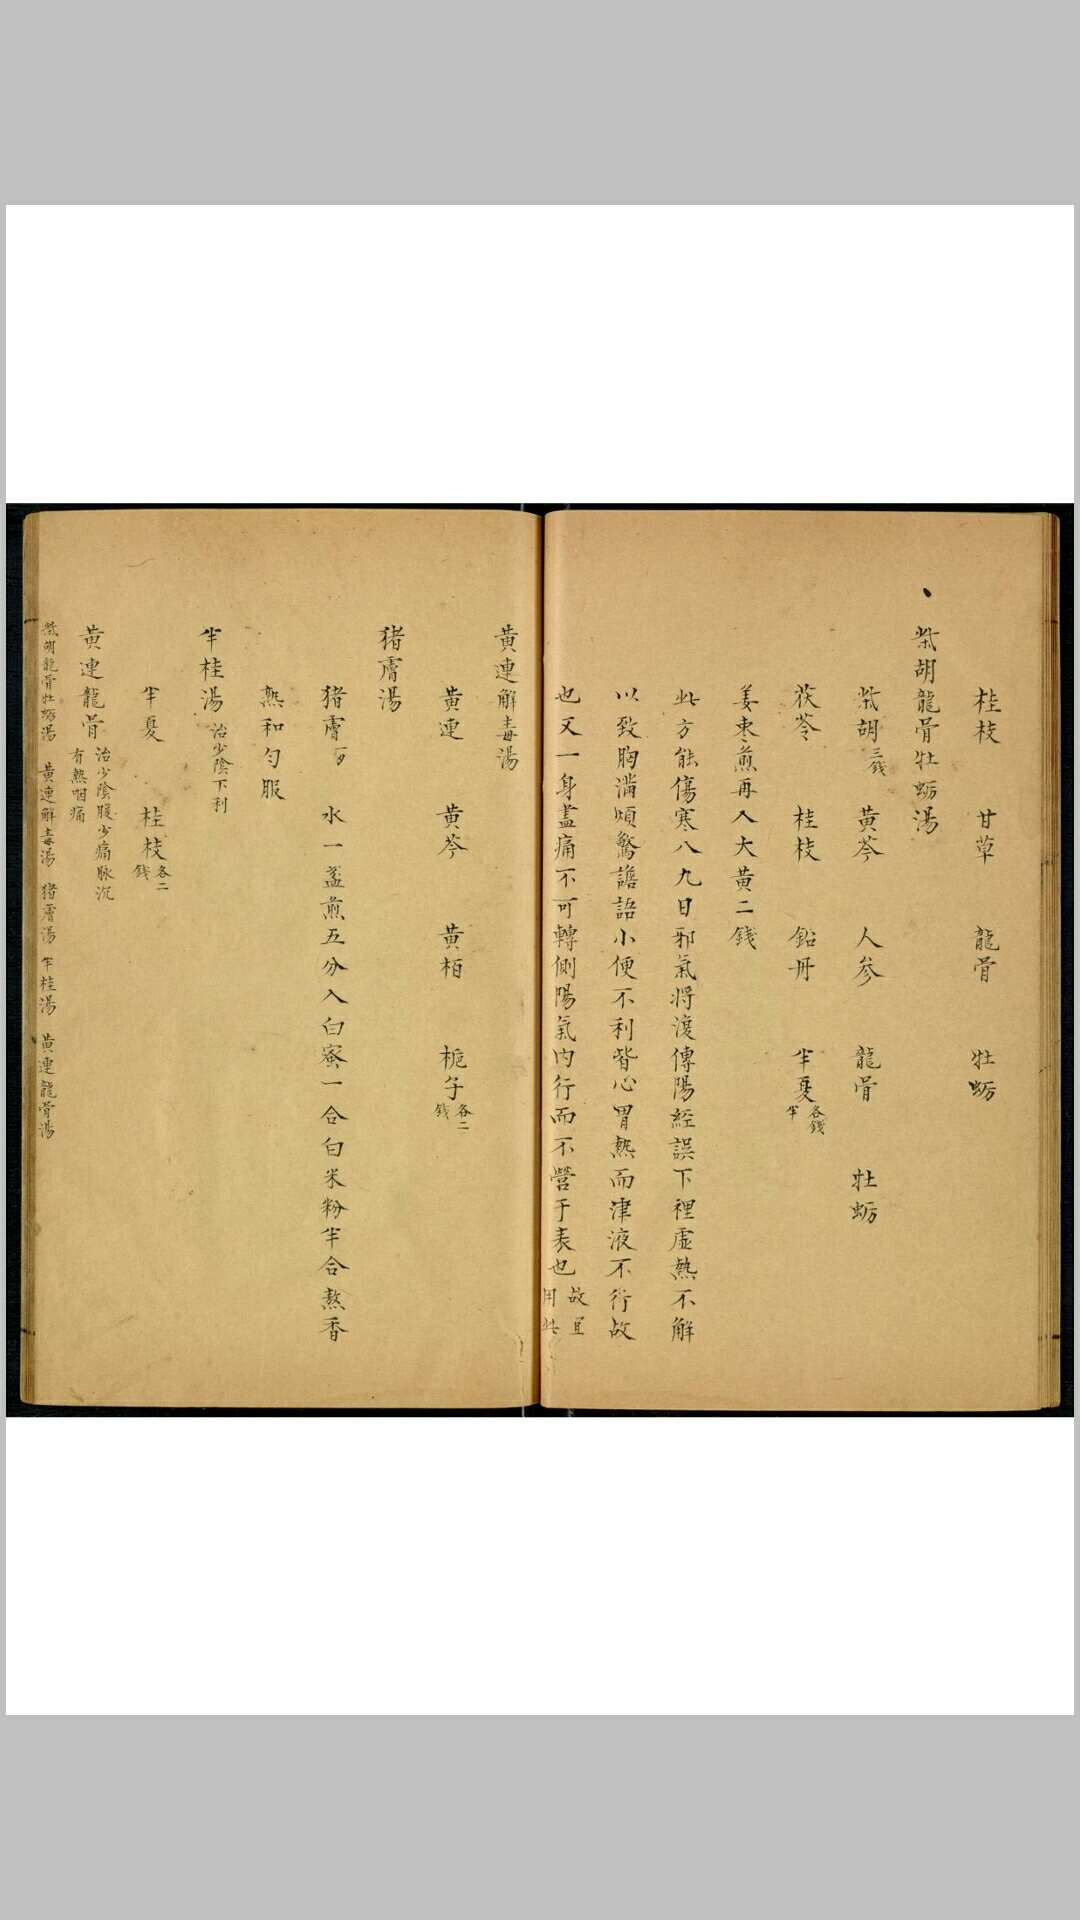 桂枝 甘草 龍骨 牡蛎
柴胡龍骨牡蛎湯
柴胡三錢 黄芩 人参 龍骨 牡蛎
茯苓 桂枝 鉛丹 半夏各錢半
姜枣煎再入大黄二錢
此方能傷寒八九日邪氣将復傳陽經誤下裡虚熱不解
以致胸満煩驚譫語小便不利皆心胃熱而津液不行故
也又一身盡痛不可轉側陽氣内行而不營于表也故宜用此
黄連解毒湯
黄連 黄芩 黄栢 梔子各二錢
猪膚湯
猪膚 水一盞煎五分入白蜜一合白米粉半合熬香
熟和匀服
半桂湯 治少陰下利
半夏 桂枝各二錢
黄連龍骨 治少陰腹少痛脉沉有熱咽痛
柴胡龍骨牡蛎湯 黄連解毒湯 猪膚湯 半桂湯 黄連龍骨湯